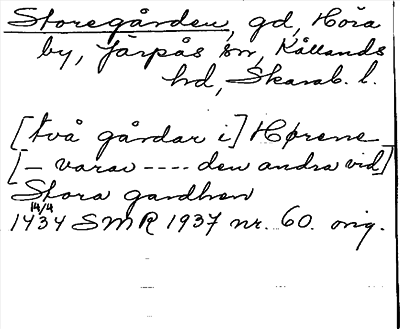 Storegården, gd, Höra
by, Järpås sn, Kållands
hd, Skarab. l.
[två gårdar i] Hørene
[– varav ---- den andra vid]
Stora gardhen
14/4
1434 SMR 1937 nr. 60. orig.